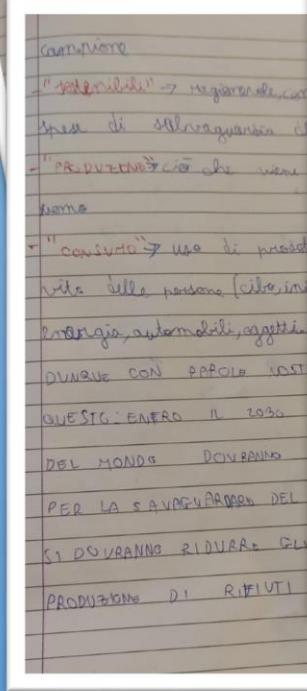 campione
- "sostenibili" → ragionevole, con
spese di salvaguardia d
- "PRODUZIONE" → ciò che viene
uomo
- "CONSUMO" → uso di prodo
vita delle persone (cibo, in
energia, automobili, oggetti
DUNQUE CON PAROLE VOST
QUESTO: ENTRO IL 2030
DEL MONDO DOVRANNO
PER LA SAVAGUARDARD DEL
SI DOVRANNO RIDURRE GLI
PRODUZIONE DI RIFIUTI